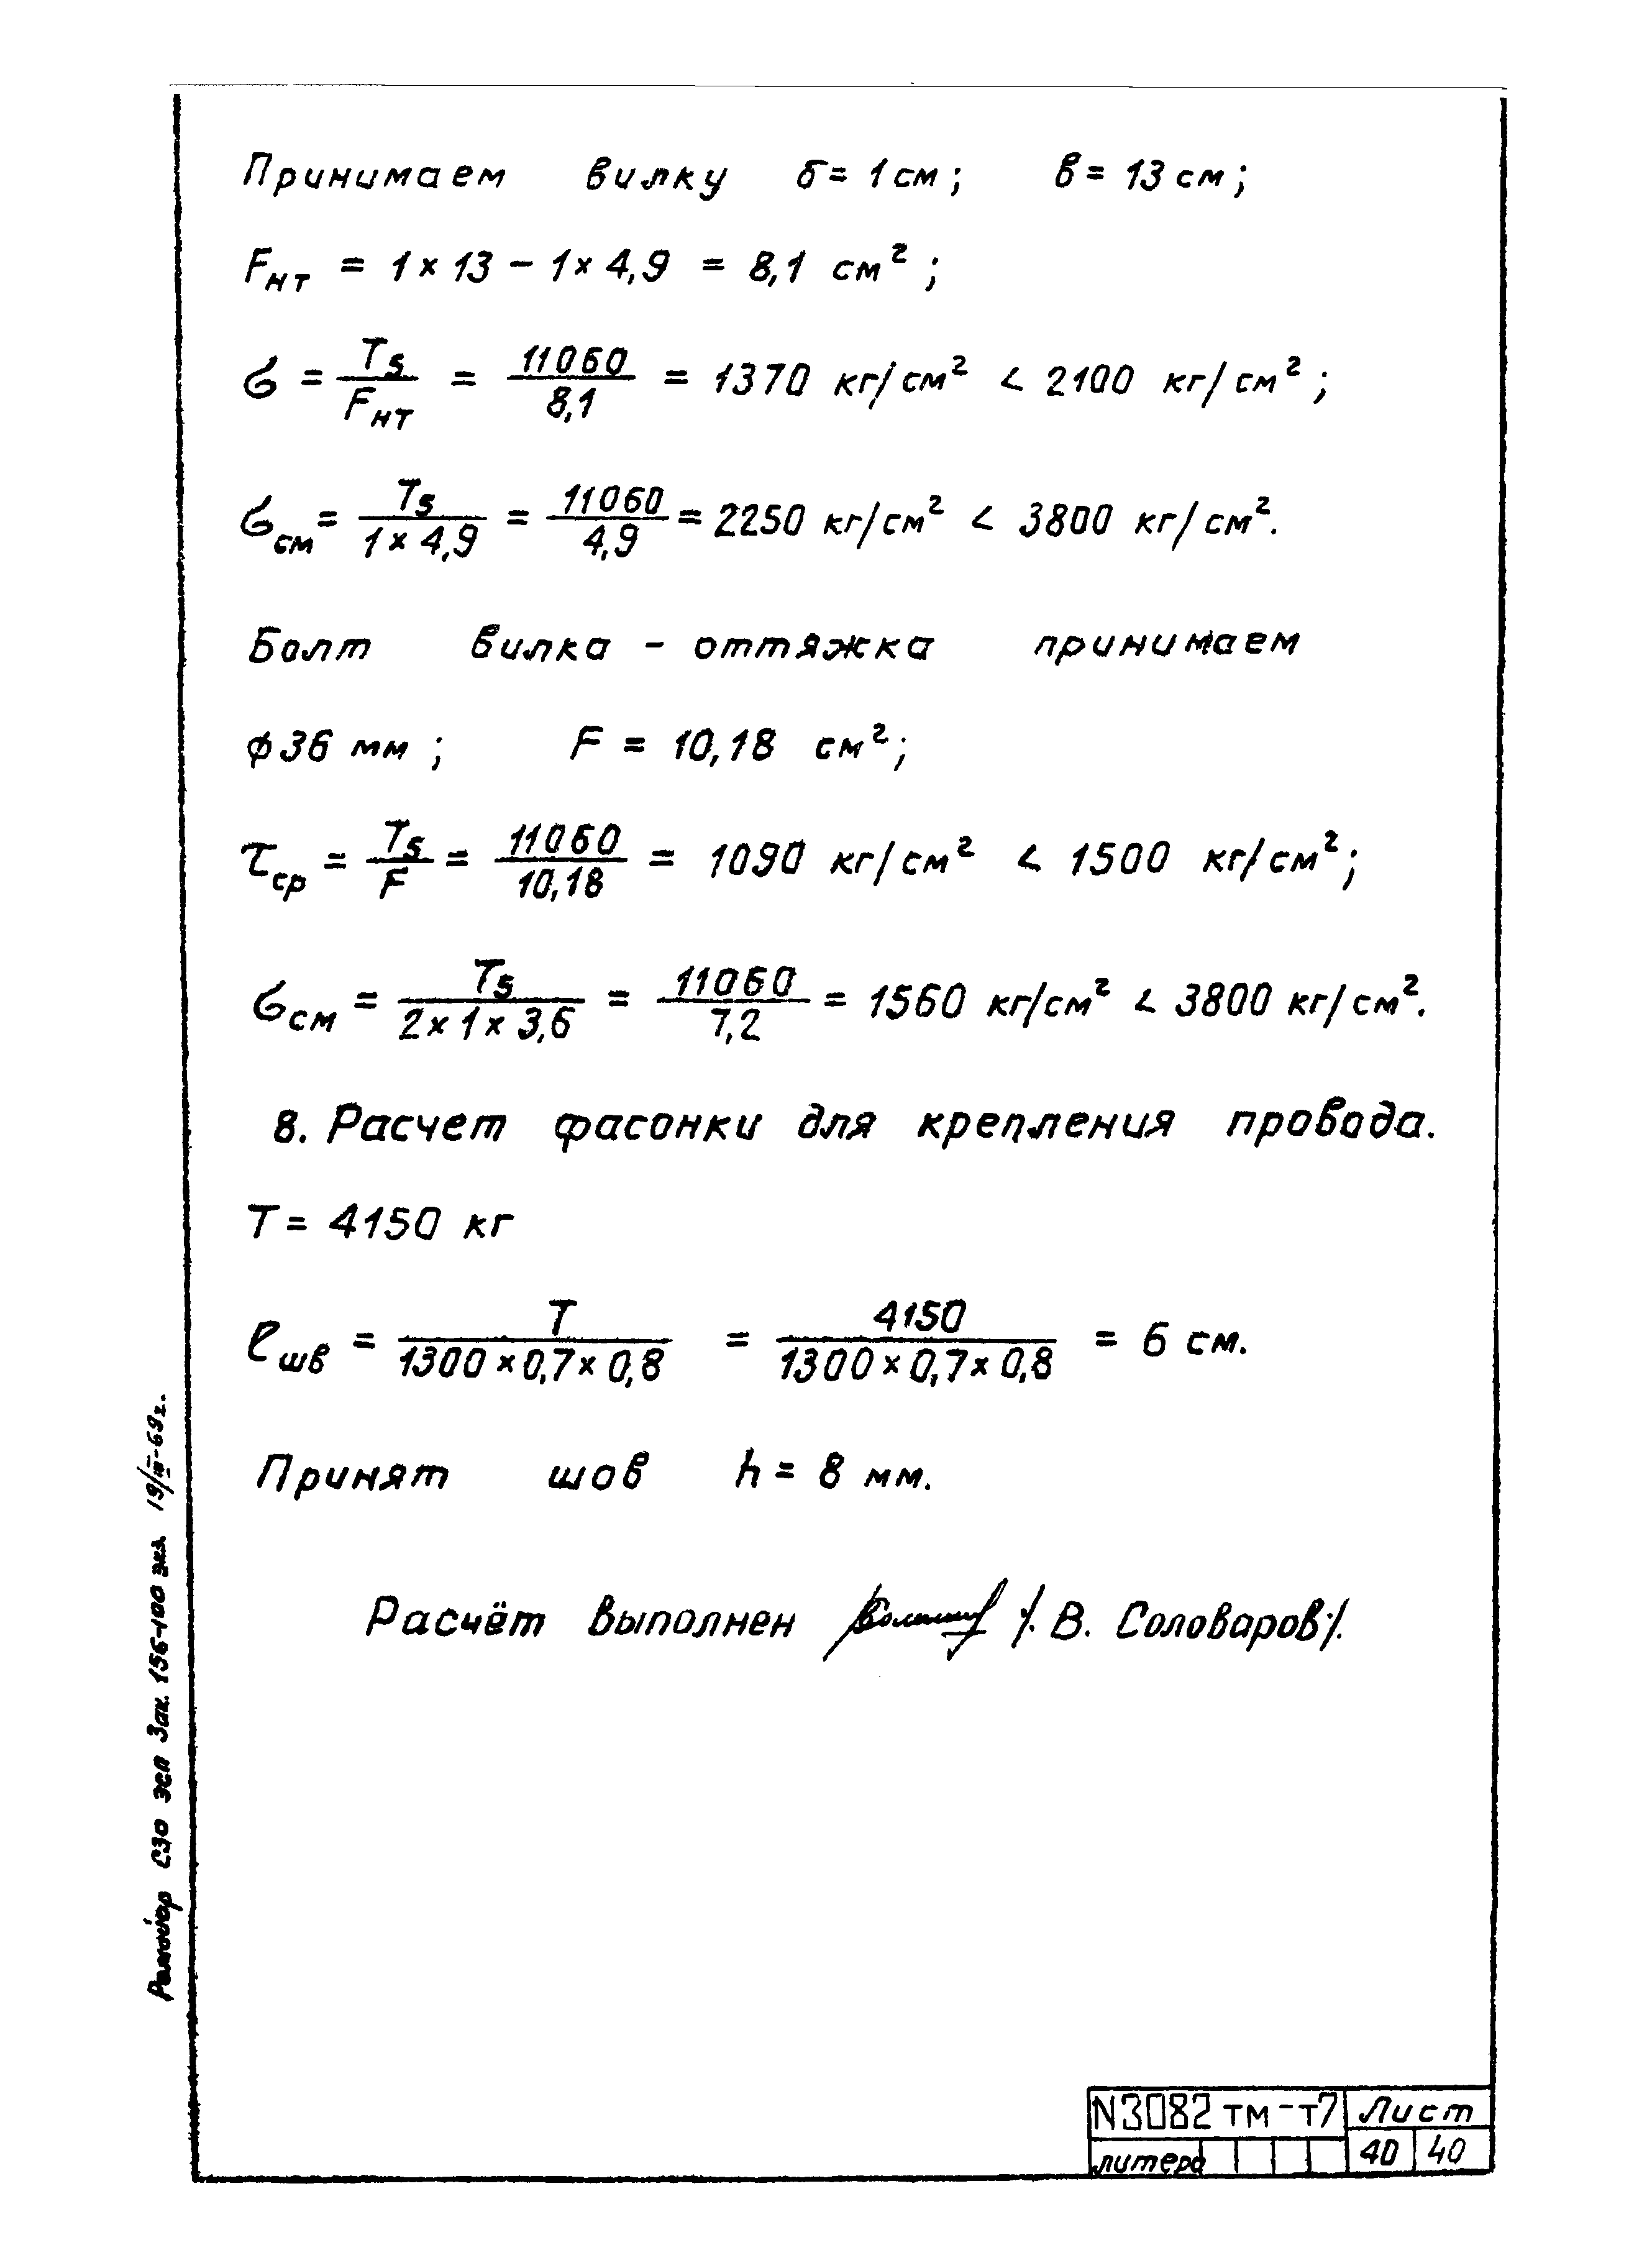 Принимаем вилку б = 1 см; в = 13 см;
Fнт = 1 × 13 - 1 × 4,9 = 8,1 см²;
σ = T5/Fнт = 11060/8,1 = 1370 кг/см² < 2100 кг/см²;
σсм = T5/1 × 4,9 = 11060/4,9 = 2250 кг/см² < 3800 кг/см².
Болт вилка - оттяжка принимаем
ϕ36 мм; F = 10,18 см²;
τср = T5/F = 11060/10,18 = 1090 кг/см² < 1500 кг/см²;
σсм = T5/2 × 1 × 3,6 = 11060/7,2 = 1560 кг/см² < 3800 кг/см².
8. Расчет фасонки для крепления провода.
T = 4150 кг
ℓшв = T/1300 × 0,7 × 0,8 = 4150/1300 × 0,7 × 0,8 = 6 см.
Принят шов h = 8 мм.
Расчёт выполнен /. В. Соловаров ./.
СЗО ЭСП Зак. 156-100 экз. 19/III-69г.
N3082 тм-т7 Лист
литера 40 40